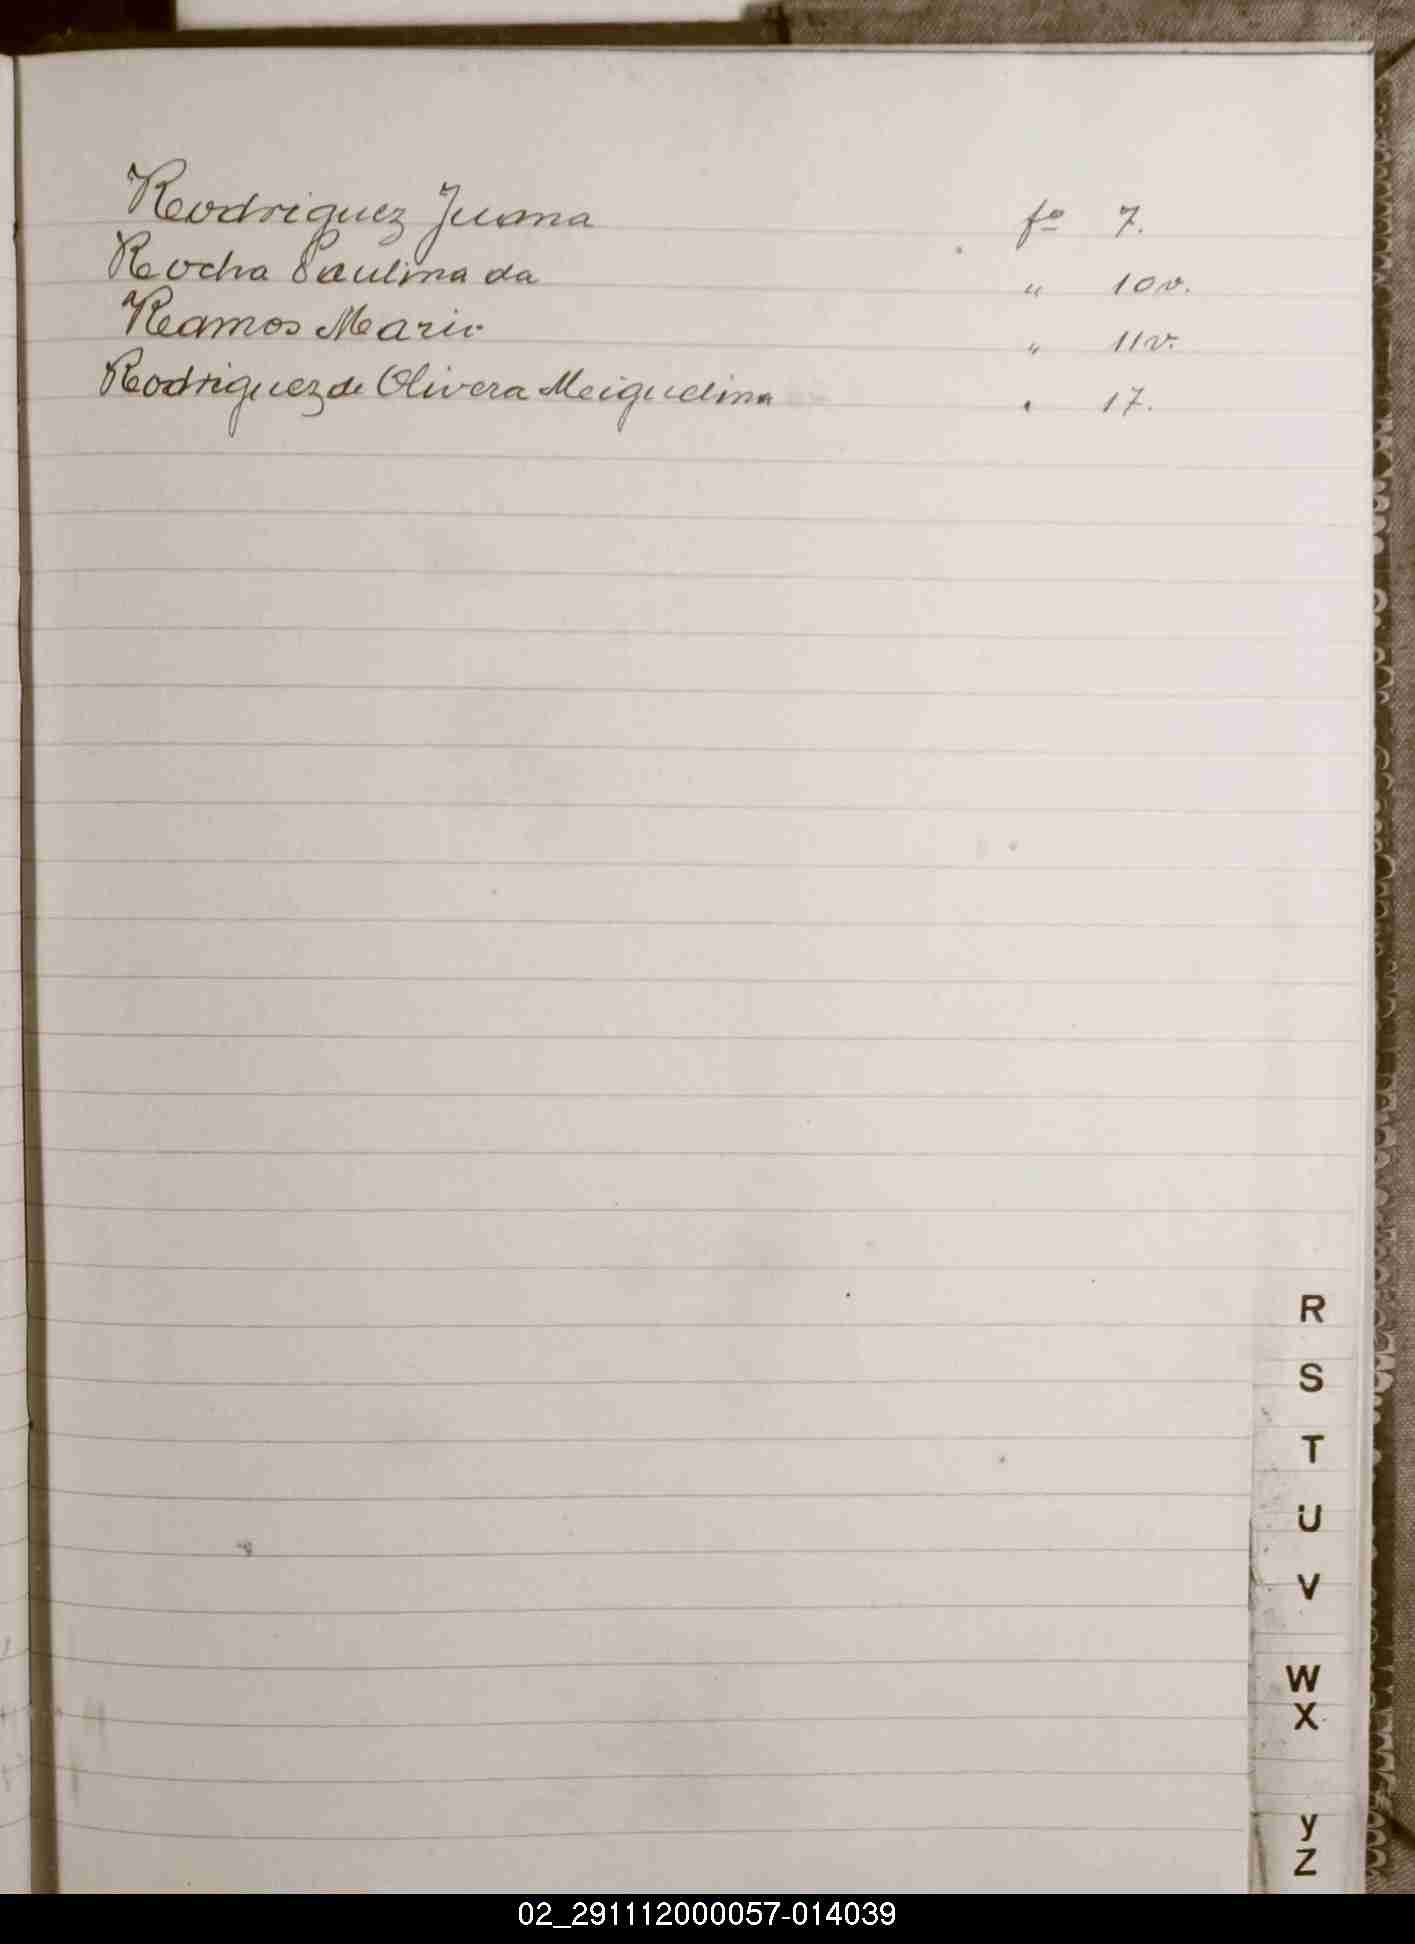 Rodriguez Juana fº 7.
Rocha Paulina da " 10v.
Ramos Mario " 11v.
Rodriguez de Olivera Meiguelina " 17.
R
S
T
U
V
W
X
y
Z
02_291112000057-014039